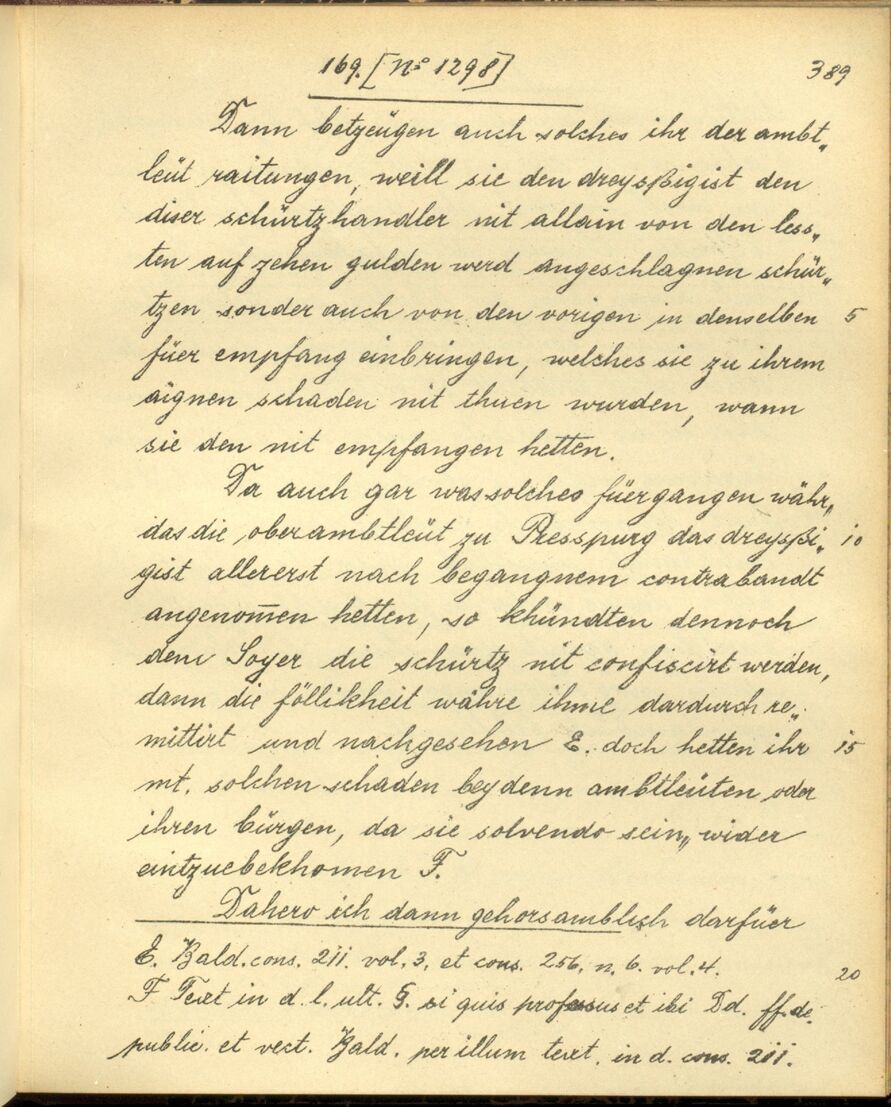 169. [Nº 1298]
389
Dann betzeügen auch solches ihr der ambt„
leüt raitungen, weill sie den dreysßigist den
diser schürtzhandler nit allain von den less„
ten auf zehen gulden werd angeschlagnen schür„
tzen sonder auch von den vorigen in denselben 5
füer empfang einbringen, welches sie zu ihrem
aignen schaden nit thuen wurden, wann
sie den nit empfangen hetten.
Da auch gar was solches füergangen währ„
das die oberambtleüt zu Presspurg das dreysßi„ 10
gist allererst nach begangnem contrabandt
angenom̅en hetten, so khündten dennoch
dem Soyer die schürtz nit confiscirt werden,
dann die föllikheit währe ihme dardurch re„
mittirt und nachgesehen E. doch hetten ihr 15
mt. solchen schaden bey denn ambtleüten oder
ihren bürgen, da sie solvendo sein„ wider
eintzuebekhomen F.
Dahero ich dann gehorsamblich darfüer
E. Bald. cons. 211. vol. 3. et cons. 256. n. 6. vol. 4. 20
F Text in d. l. ult. §. si quis professus et ibi Dd. ff. de.
public. et vect. Bald. per illum text. in d. cons. 211.